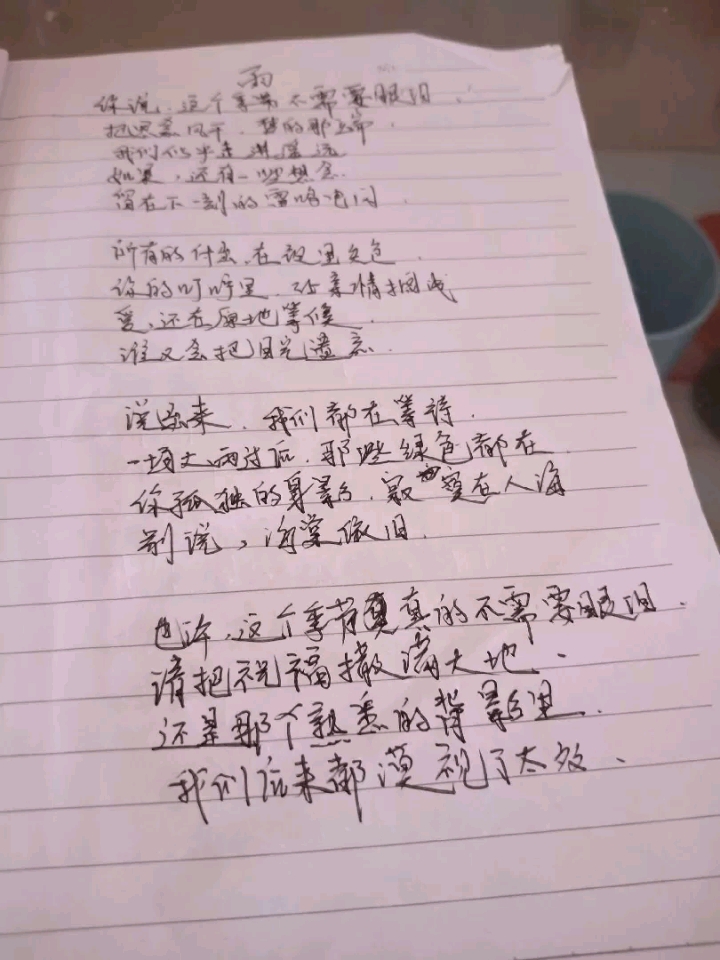 雨
你说,这个季节不需要眼泪.
把思念风干.梦的那端.
我们似乎走进遥远
如果,还有一些想念.
留在下一刻的雷鸣电闪.
所有的什么,在夜里变色.
你的叮咛里.
爱,还在原地等候.
谁又会把目光遗忘.
说后来,我们都在等待.
一场大雨过后.那些绿色都在
你孤独的身影,寂寞在人海
别说,海棠依旧.
也许,这个季节真的不需要眼泪.
请把祝福撒满大地.
还是那个熟悉的背影里.
我们后来都漠视了太多.